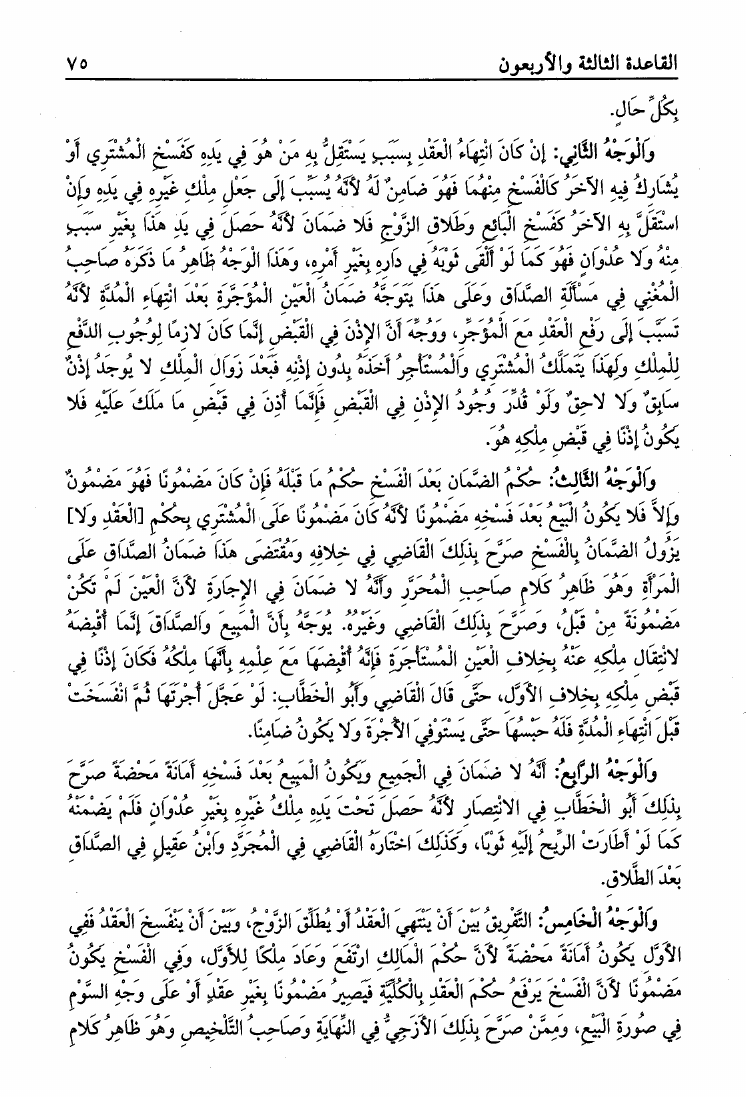 القاعدة الثالثة والأربعون ٧٥
بِكُلِّ حَالٍ.
وَالْوَجْهُ الثَّانِي: إِنْ كَانَ انْتِهَاءُ الْعَقْدِ بِسَبَبٍ يَسْتَقِلُّ بِهِ مَنْ هُوَ فِي يَدِهِ كَفَسْخِ الْمُشْتَرِي أَوْ
يُشَارِكُ فِيهِ الآخَرُ كَالْفَسْخِ مِنْهُمَا فَهُوَ ضَامِنٌ لَهُ لأَنَّهُ يُسَبِّبُ إِلَى جَعْلِ مِلْكِ غَيْرِهِ فِي يَدِهِ وَإِنْ
اسْتَقَلَّ بِهِ الآخَرُ كَفَسْخِ الْبَائِعِ وَطَلاقِ الزَّوْجِ فَلا ضَمَانَ لأَنَّهُ حَصَلَ فِي يَدِ هَذَا بِغَيْرِ سَبَبٍ
مِنْهُ وَلا عُدْوَانٍ فَهُوَ كَمَا لَوْ أَلْقَى ثَوْبَهُ فِي دَارِهِ بِغَيْرِ أَمْرِهِ، وَهَذَا الْوَجْهُ ظَاهِرُ مَا ذَكَرَهُ صَاحِبُ
الْمُغْنِي فِي مَسْأَلَةِ الصَّدَاقِ وَعَلَى هَذَا يَتَوَجَّهُ ضَمَانُ الْعَيْنِ الْمُؤَجَّرَةِ بَعْدَ انْتِهَاءِ الْمُدَّةِ لأَنَّهُ
تَسَبَّبَ إِلَى رَفْعِ الْعَقْدِ مَعَ الْمُؤَجِّرِ، وَوُجِّهَ أَنَّ الإِذْنَ فِي الْقَبْضِ إِنَّمَا كَانَ لازِمًا لِوُجُوبِ الدَّفْعِ
لِلْمِلْكِ وَلِهَذَا يَتَمَلَّكُ الْمُشْتَرِي وَالْمُسْتَأْجِرُ أَخْذَهُ بِدُونِ إِذْنِهِ فَبَعْدَ زَوَالِ الْمِلْكِ لا يُوجَدُ إِذْنٌ
سَابِقٌ وَلا لاحِقٌ وَلَوْ قُدِّرَ وُجُودُ الإِذْنِ فِي الْقَبْضِ فَإِنَّمَا أَذِنَ فِي قَبْضِ مَا مَلَكَ عَلَيْهِ فَلا
يَكُونُ إِذْنًا فِي قَبْضِ مِلْكِهِ هُوَ.
وَالْوَجْهُ الثَّالِثُ: حُكْمُ الضَّمَانِ بَعْدَ الْفَسْخِ حُكْمُ مَا قَبْلَهُ فَإِنْ كَانَ مَضْمُونًا فَهُوَ مَضْمُونٌ
وَإِلاَّ فَلا يَكُونُ الْبَيْعُ بَعْدَ فَسْخِهِ مَضْمُونًا لأَنَّهُ كَانَ مَضْمُونًا عَلَى الْمُشْتَرِي بِحُكْمِ [الْعَقْدِ وَلا]
يَزُولُ الضَّمَانُ بِالْفَسْخِ صَرَّحَ بِذَلِكَ الْقَاضِي فِي خِلافِهِ وَمُقْتَضَى هَذَا ضَمَانُ الصَّدَاقِ عَلَى
الْمَرْأَةِ وَهُوَ ظَاهِرُ كَلامِ صَاحِبِ الْمُحَرَّرِ وَأَنَّهُ لا ضَمَانَ فِي الإِجَارَةِ لأَنَّ الْعَيْنَ لَمْ تَكُنْ
مَضْمُونَةً مِنْ قَبْلُ، وَصَرَّحَ بِذَلِكَ الْقَاضِي وَغَيْرُهُ. يُوَجَّهُ بِأَنَّ الْمَبِيعَ وَالصَّدَاقَ إِنَّمَا أَقْبَضَهُ
لانْتِقَالِ مِلْكِهِ عَنْهُ بِخِلافِ الْعَيْنِ الْمُسْتَأْجَرَةِ فَإِنَّهُ أَقْبَضَهَا مَعَ عِلْمِهِ بِأَنَّهَا مِلْكُهُ فَكَانَ إِذْنًا فِي
قَبْضِ مِلْكِهِ بِخِلافِ الأَوَّلِ، حَتَّى قَالَ الْقَاضِي وَأَبُو الْخَطَّابِ: لَوْ عَجَّلَ أُجْرَتَهَا ثُمَّ انْفَسَخَتْ
قَبْلَ انْتِهَاءِ الْمُدَّةِ فَلَهُ حَبْسُهَا حَتَّى يَسْتَوْفِيَ الأُجْرَةَ وَلا يَكُونُ ضَامِنًا.
وَالْوَجْهُ الرَّابِعُ: أَنَّهُ لا ضَمَانَ فِي الْجَمِيعِ وَيَكُونُ الْمَبِيعُ بَعْدَ فَسْخِهِ أَمَانَةً مَحْضَةً صَرَّحَ
بِذَلِكَ أَبُو الْخَطَّابِ فِي الانْتِصَارِ لأَنَّهُ حَصَلَ تَحْتَ يَدِهِ مِلْكُ غَيْرِهِ بِغَيْرِ عُدْوَانٍ فَلَمْ يَضْمَنْهُ
كَمَا لَوْ أَطَارَتْ الرِّيحُ إِلَيْهِ ثَوْبًا، وَكَذَلِكَ اخْتَارَهُ الْقَاضِي فِي الْمُجَرَّدِ وَابْنُ عَقِيلٍ فِي الصَّدَاقِ
بَعْدَ الطَّلاقِ.
وَالْوَجْهُ الْخَامِسُ: التَّفْرِيقُ بَيْنَ أَنْ يَنْتَهِيَ الْعَقْدُ أَوْ يُطَلِّقَ الزَّوْجُ، وَبَيْنَ أَنْ يَنْفَسِخَ الْعَقْدُ فَفِي
الأَوَّلِ يَكُونُ أَمَانَةً مَحْضَةً لأَنَّ حُكْمَ الْمَالِكِ ارْتَفَعَ وَعَادَ مِلْكًا لِلأَوَّلِ، وَفِي الْفَسْخِ يَكُونُ
مَضْمُونًا لأَنَّ الْفَسْخَ يَرْفَعُ حُكْمَ الْعَقْدِ بِالْكُلِّيَّةِ فَيَصِيرُ مَضْمُونًا بِغَيْرِ عَقْدٍ أَوْ عَلَى وَجْهِ السَّوْمِ
فِي صُورَةِ الْبَيْعِ، وَمِمَّنْ صَرَّحَ بِذَلِكَ الأَزَجِيُّ فِي النِّهَايَةِ وَصَاحِبُ التَّلْخِيصِ وَهُوَ ظَاهِرُ كَلامِ